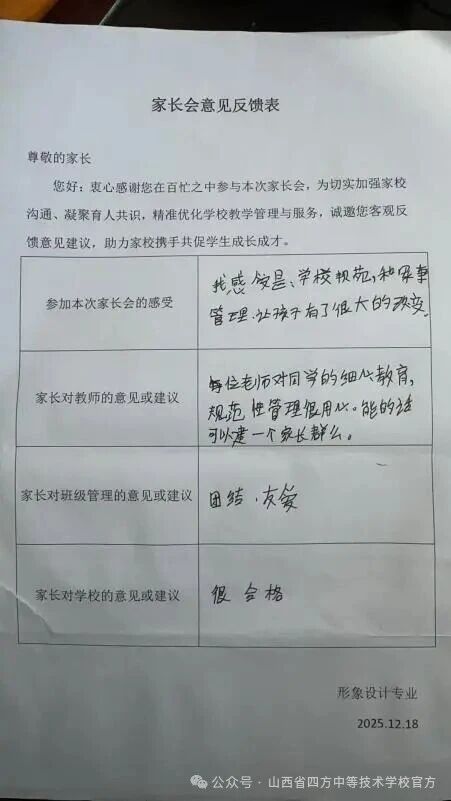 家长会意见反馈表
尊敬的家长
您好：衷心感谢您在百忙之中参与本次家长会，为切实加强家校
沟通、凝聚育人共识，精准优化学校教学管理与服务，诚邀您客观反
馈意见建议，助力家校携手共促学生成长成才。
参加本次家长会的感受
我感觉是、学校规范，和军事
管理.让孩子有了很大的改变.
家长对教师的意见或建议
每位老师对同学的细心教育，
规范性管理很用心。能的话
可以建一个家长群么。
家长对班级管理的意见或建议
团结.友爱
家长对学校的意见或建议
很合格
形象设计专业
2025.12.18
公众号·山西省四方中等技术学校官方